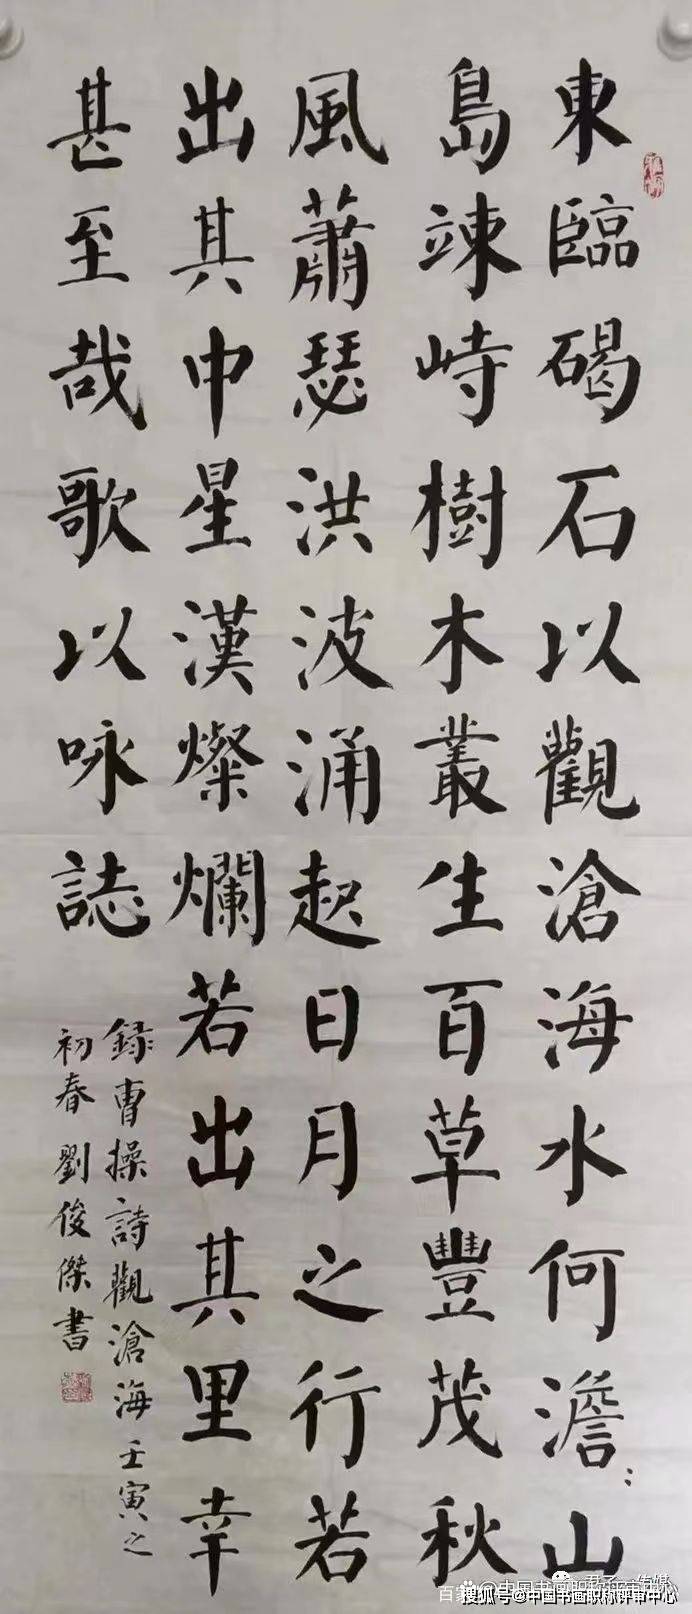 東臨碣石以觀滄海水何澹〻山
島竦峙樹木叢生百草豐茂秋
風蕭瑟洪波涌起日月之行若
出其中星漢燦爛若出其里幸
甚至哉歌以咏誌
録曹操詩觀滄海壬寅之
初春劉俊傑書
搜狐号@中国书画职称评审中心